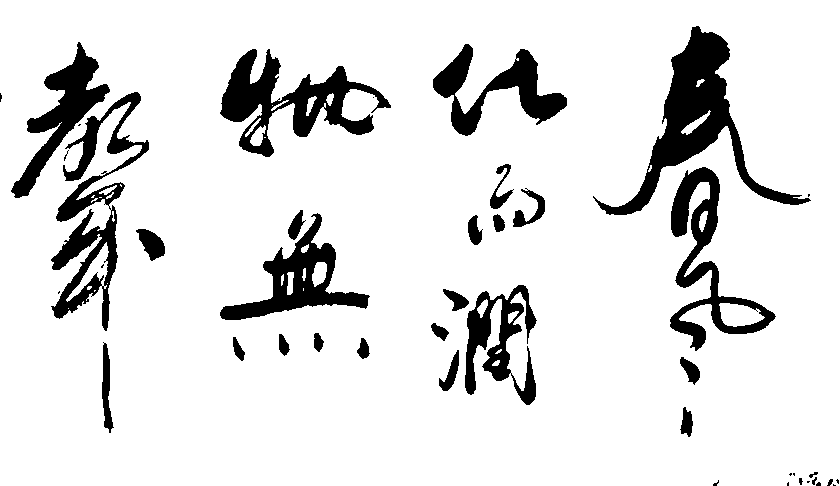 春風
化雨潤
物無
聲